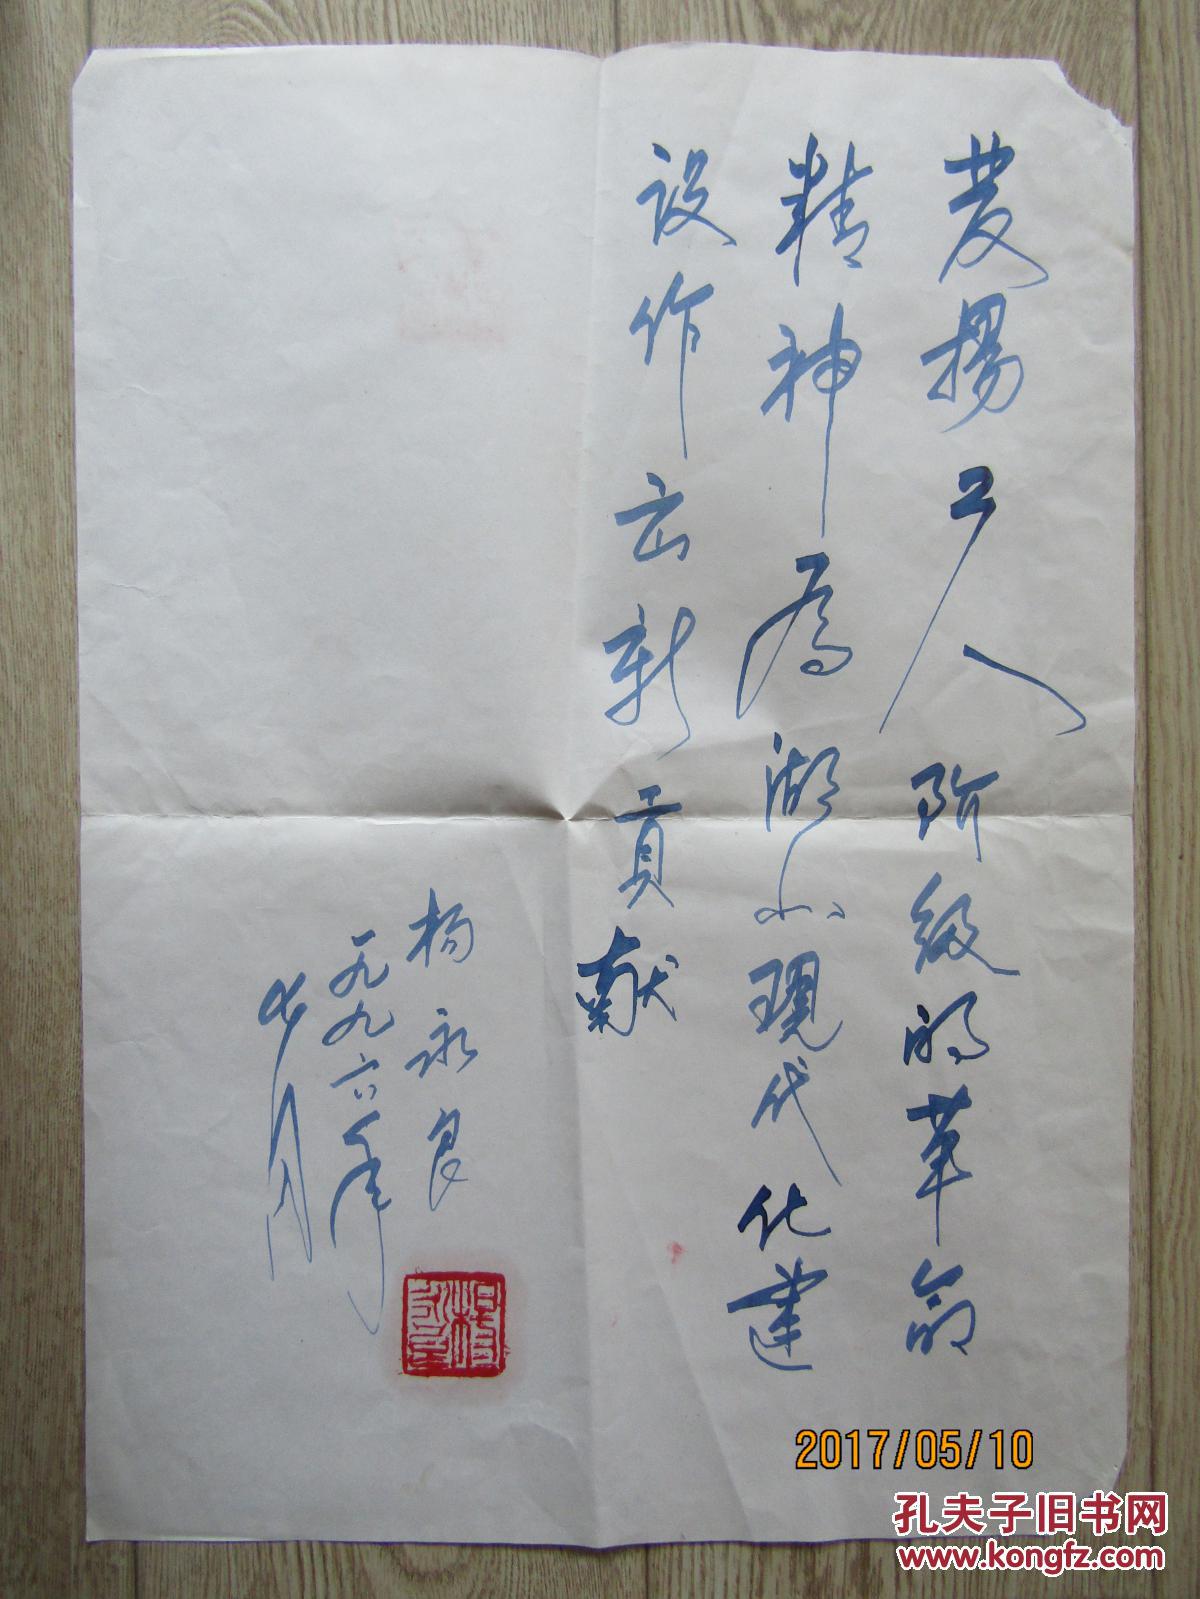 發揚工人阶级的革命
精神为湖北現代化建
设作出新貢献
杨永良
一九九六年
七月
2017/05/10
孔夫子旧书网
www.kongfz.com